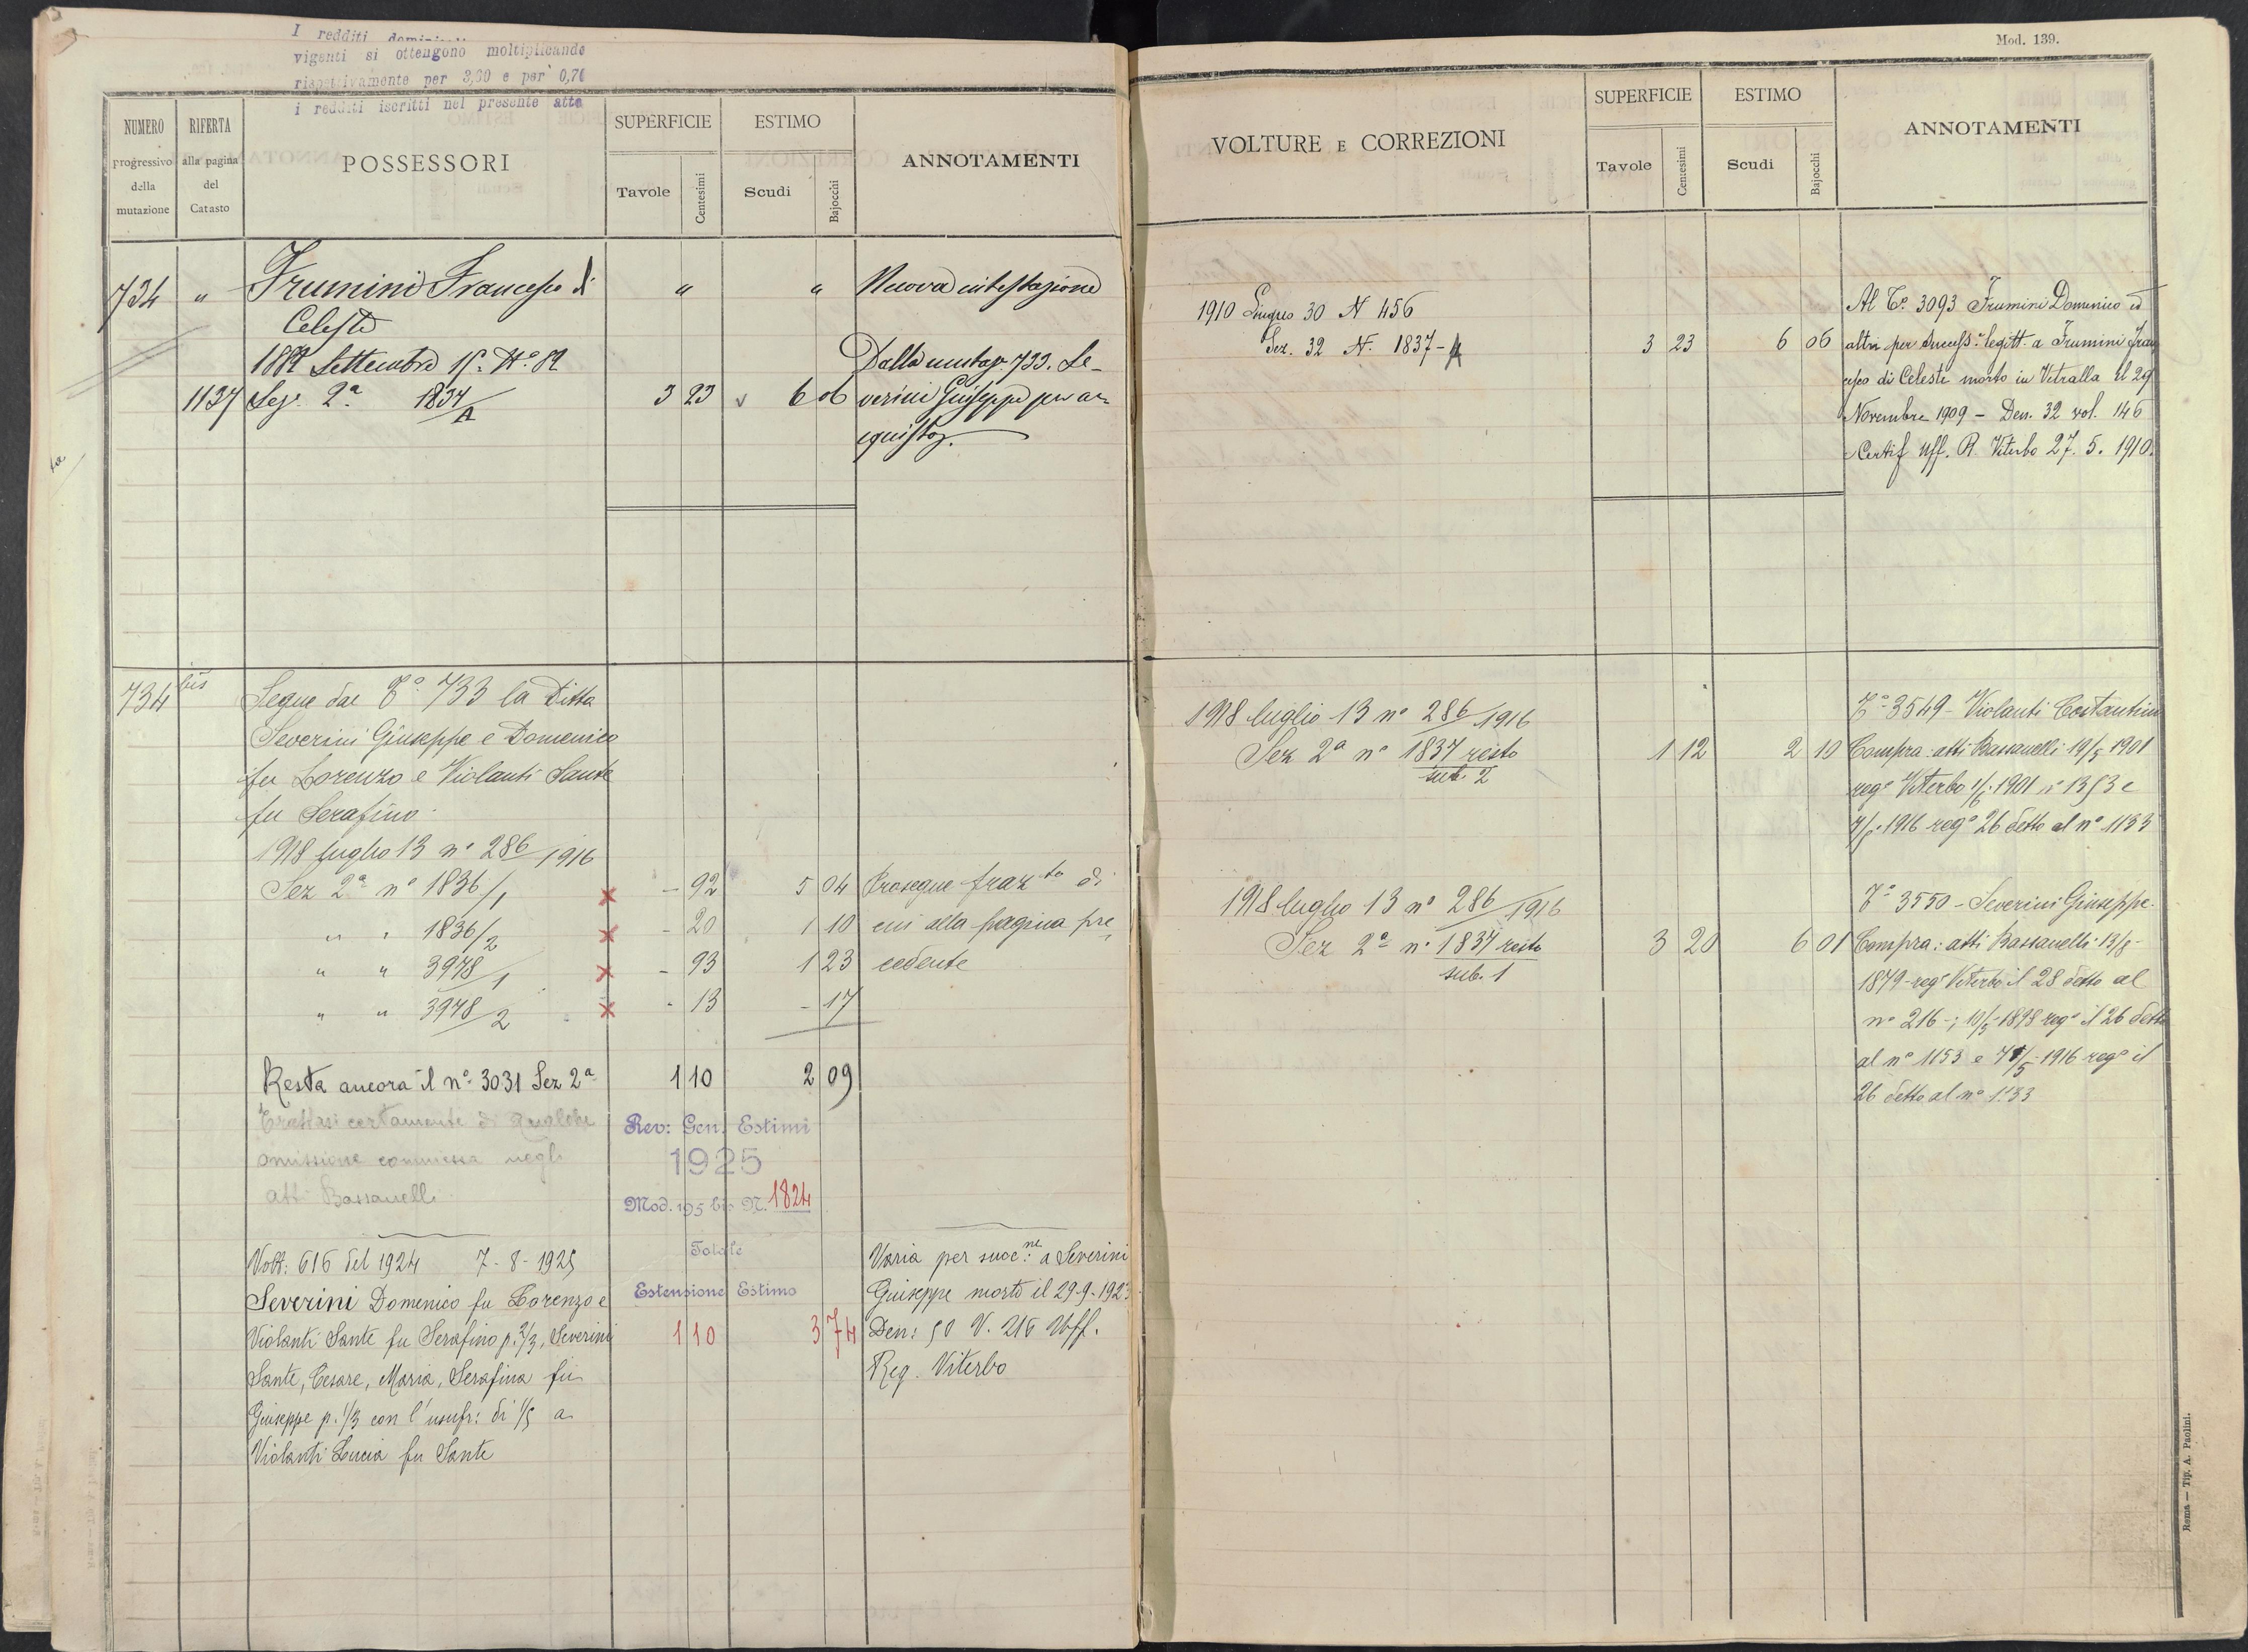 I redditi
vigenti si ottengono moltiplicando
rispettivamente per 3,00 e per 0,70
i redditi iscritti nel presente atto
NUMERO
progressivo
della
mutazione
RIFERTA
alla pagina
del
Catasto
POSSESSORI
SUPERFICIE
Tavole
Centesimi
ESTIMO
Scudi
Bajocchi
ANNOTAMENTI
734 " Frumini Francesco di " " Nuova intestazione
Celeste
1882 Settembre 15 N.º 82 Dalla mutaz. 733. Se-
1137 Sez. 2ª 1837/A 3 23 6 06 verini Giuseppe per ac-
quisto.
734 bis Segue dal Tº 733 la Ditta
Severini Giuseppe e Domenico
fu Lorenzo e Violanti Sante
fu Serafino.
1918 luglio 13 nº 286/1916
Sez 2ª nº 1836/1 - 92 5 04 Prosegue frazto di
" " 1836/2 - 20 1 10 cui alla pagina pre
" " 3978/1 - 93 1 23 cedente
" " 3978/2 - 13 - 17
Resta ancora il nº 3031 Sez 2ª 1 10 2 09
Trattasi certamente di qualche
omissione commessa negli
atti Bassanelli
Rev: Gen. Estimi
1925
Mod. 195 bis N. 1824
Totale
Estensione Estimo
1 10 3 74
Volt: 616 del 1924 7-8-1925
Severini Domenico fu Lorenzo e
Violanti Sante fu Serafino p. 2/3, Severini
Sante, Cesare, Maria, Serafina fu
Giuseppe p. 1/3 con l'usufr: di 1/5 a
Violanti Lucia fu Sante
Varia per succ:ne a Severini
Giuseppe morto il 29-9-1923
Den: 50 V. 216 Uff.
Reg. Viterbo
Mod. 139.
VOLTURE E CORREZIONI
SUPERFICIE
Tavole
Centesimi
ESTIMO
Scudi
Bajocchi
ANNOTAMENTI
1910 Giugno 30 N 456
Sez. 32 N. 1837-A 3 23 6 06
Al Tº 3093 Frumini Domenico ed
altri per success. legitt. a Frumini Fran
cesco di Celeste morto in Vetralla il 29
Novembre 1909 - Den. 32 vol. 146
Certif Uff. R. Viterbo 27. 5. 1910.
1918 luglio 13 nº 286/1916
Sez 2ª nº 1837 resto 1 12 2 10
sub. 2
Tº 3549 - Violanti Costantino
Compra: atti Bassanelli 19/5 1901
regº Viterbo 1/6 1901 nº 1353 e
1916 regº 26 detto al nº 1133
1918 luglio 13 nº 286/1916
Sez 2ª nº 1837 resto 3 20 6 01
sub. 1
Tº 3550 - Severini Giuseppe.
Compra: atti Bassanelli 13/8-
1879 - regº Viterbo il 28 detto al
nº 216 -; 10/5-1898 regº il 26 detto
al nº 1153 e 7/5-1916 regº il
26 detto al nº 1133
Roma — Tip. A. Paolini.